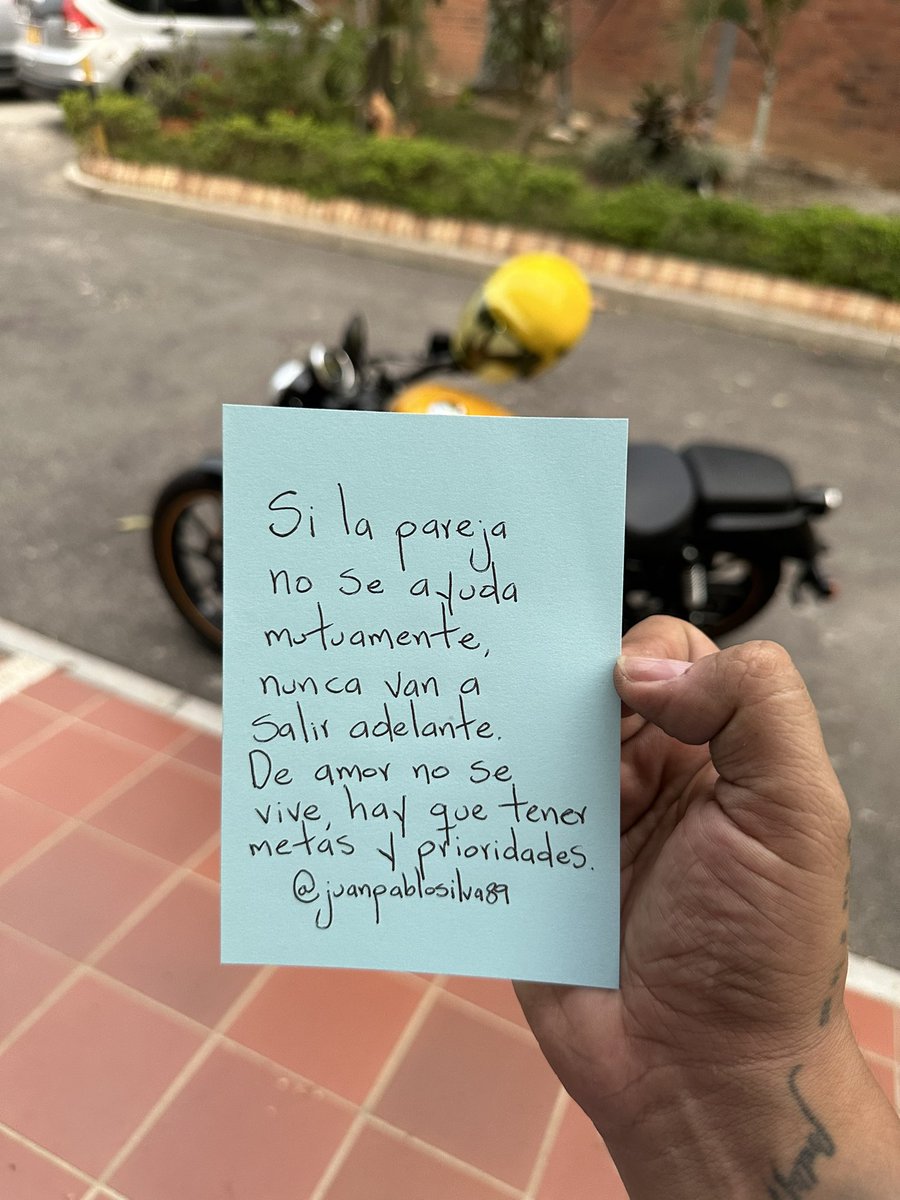 Si la pareja
no se ayuda
mutuamente,
nunca van a
salir adelante.
De amor no se
vive, hay que tener
metas y prioridades.
@juanpablosilva89